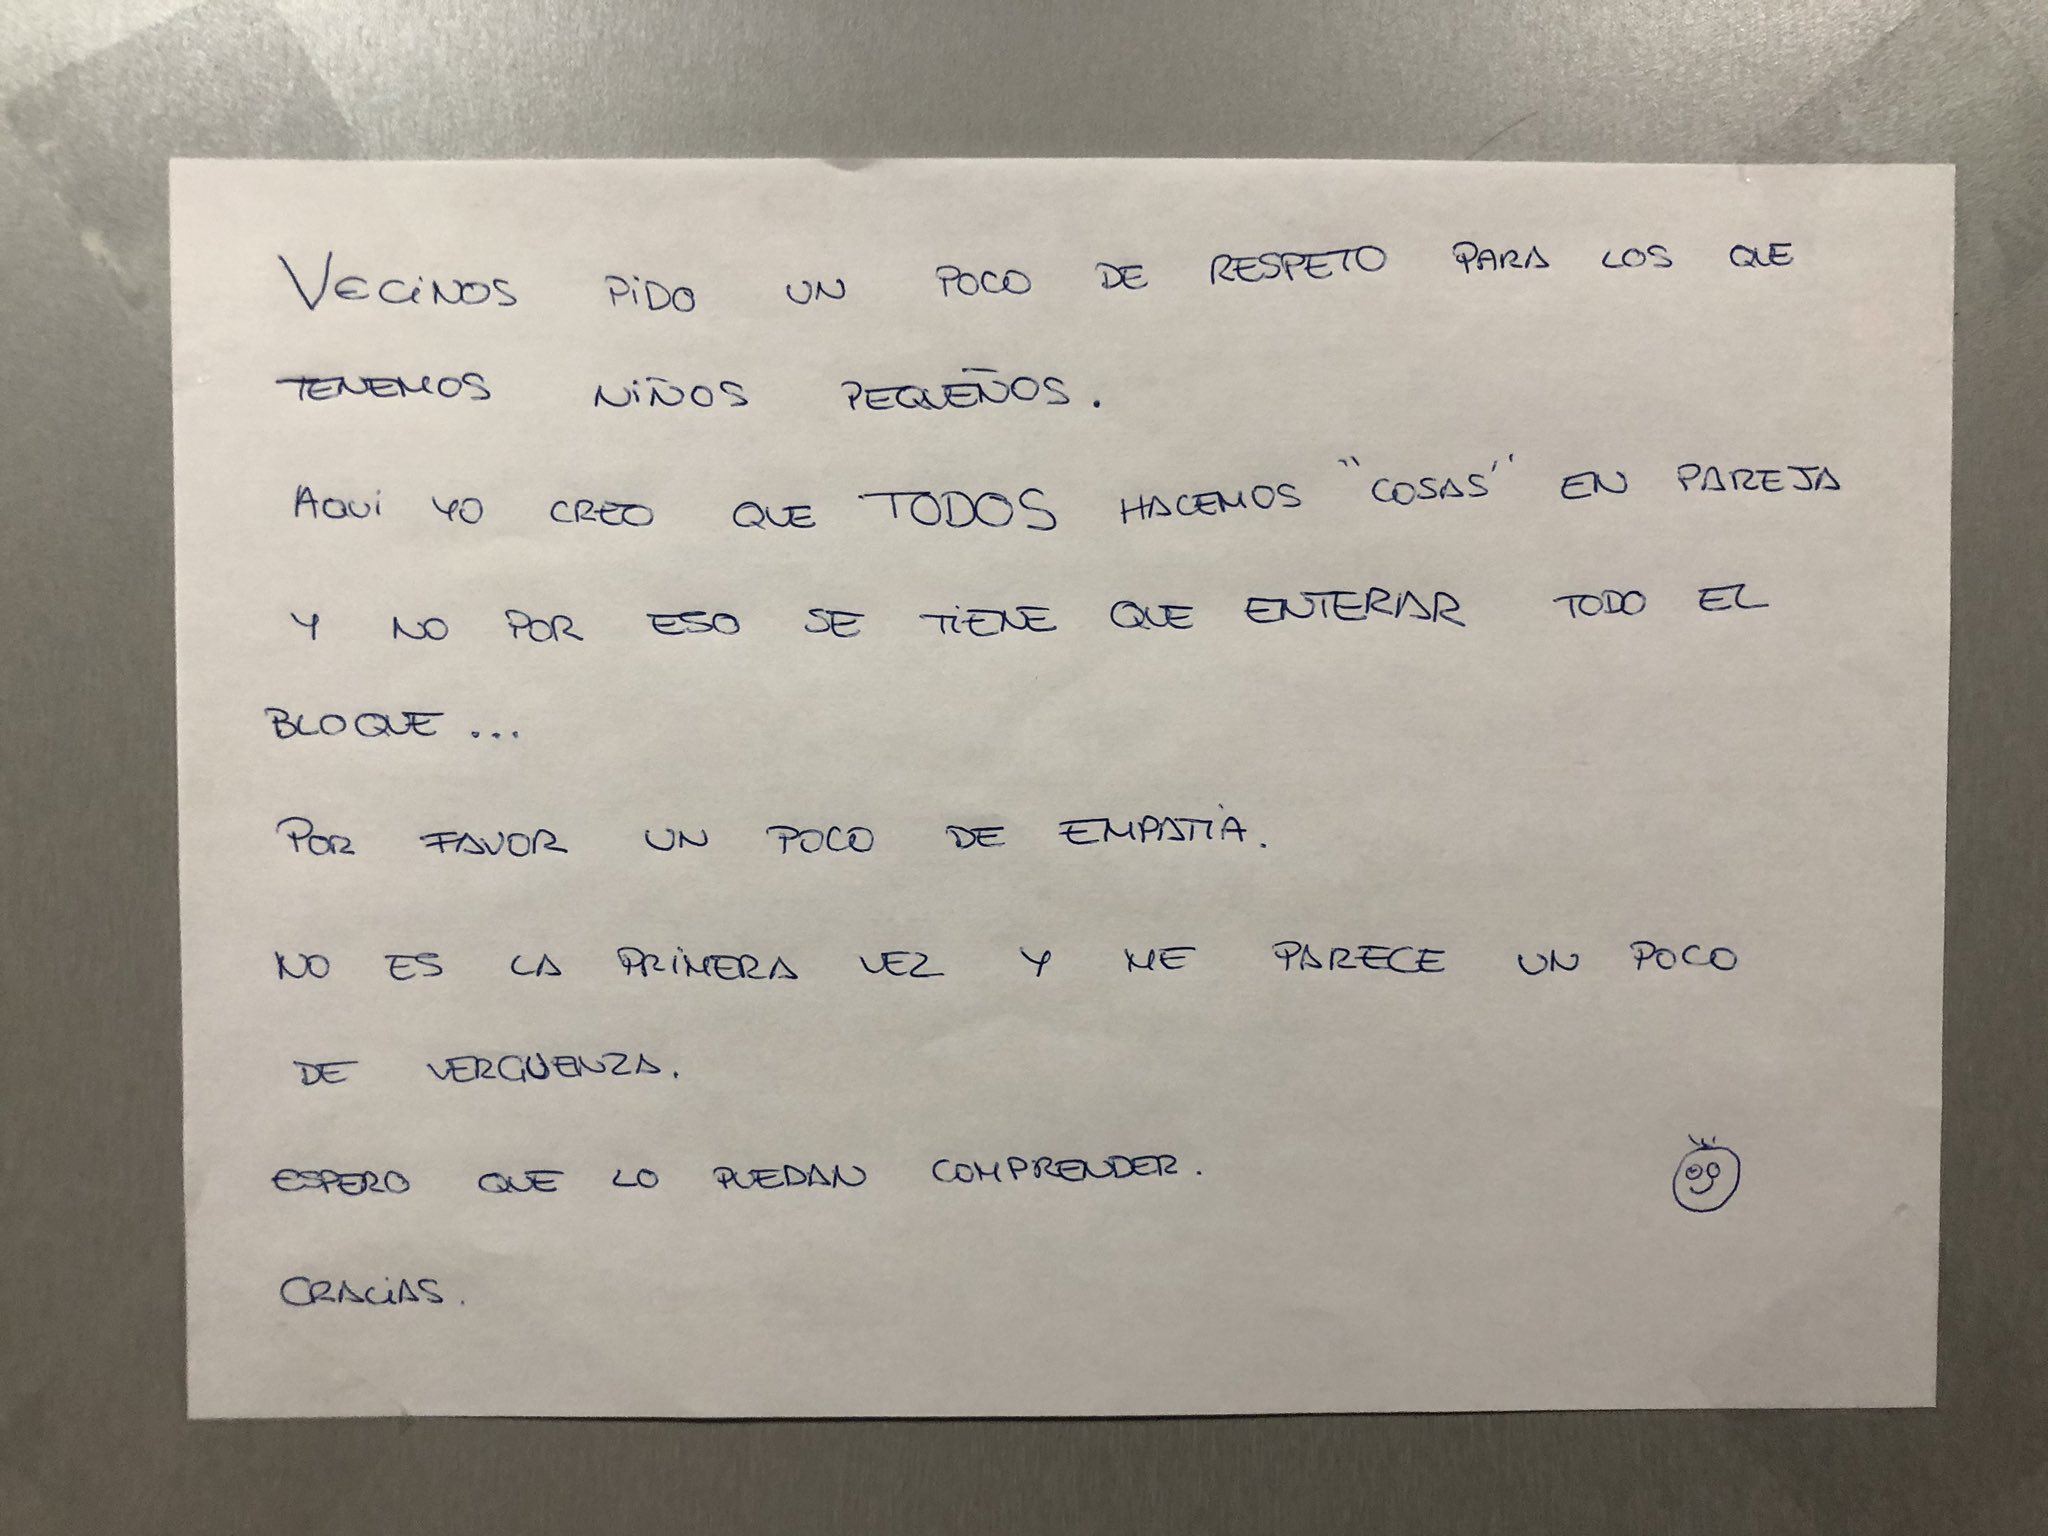 VECINOS PIDO UN POCO DE RESPETO PARA LOS QUE
TENEMOS NIÑOS PEQUEÑOS.
AQUI YO CREO QUE TODOS HACEMOS "COSAS" EN PAREJA
Y NO POR ESO SE TIENE QUE ENTERAR TODO EL
BLOQUE...
POR FAVOR UN POCO DE EMPATÍA.
NO ES LA PRIMERA VEZ Y ME PARECE UN POCO
DE VERGUENZA.
ESPERO QUE LO PUEDAN COMPRENDER.
GRACIAS.